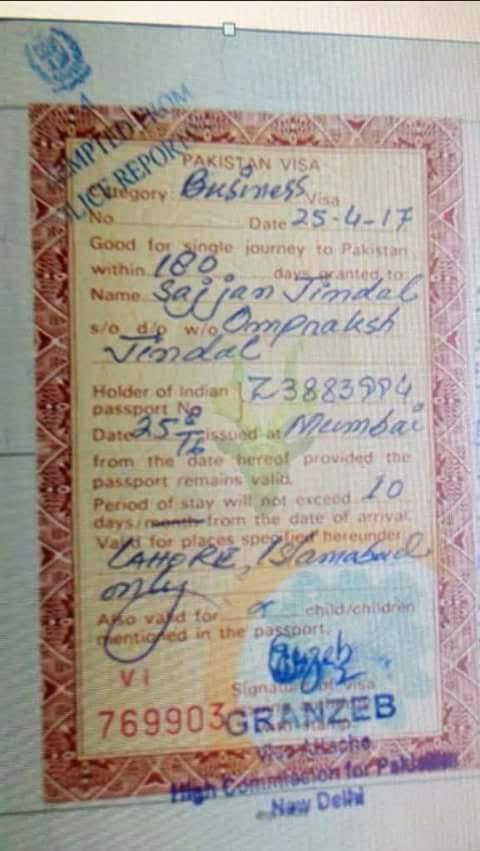 EXEMPTED FROM
POLICE REPORTING
PAKISTAN VISA
Category Business Visa
No Date 25-4-17
Good for single journey to Pakistan
within 180 days granted to
Name Sajjan Jindal
s/o d/o w/o Ompraksh
Jindal
Holder of Indian Z3883994
passport No
Date 25 8/16 issued at Mumbai
from the date hereof provided the
passport remains valid.
Period of stay will not exceed 10
days/month from the date of arrival.
Valid for places specified hereunder
LAHORE, Islamabad
only
Also valid for child/children
mentioned in the passport.
VI
Signature of visa
769903 GRANZEB
Visa Attache
High Commission for Pakistan
New Delhi